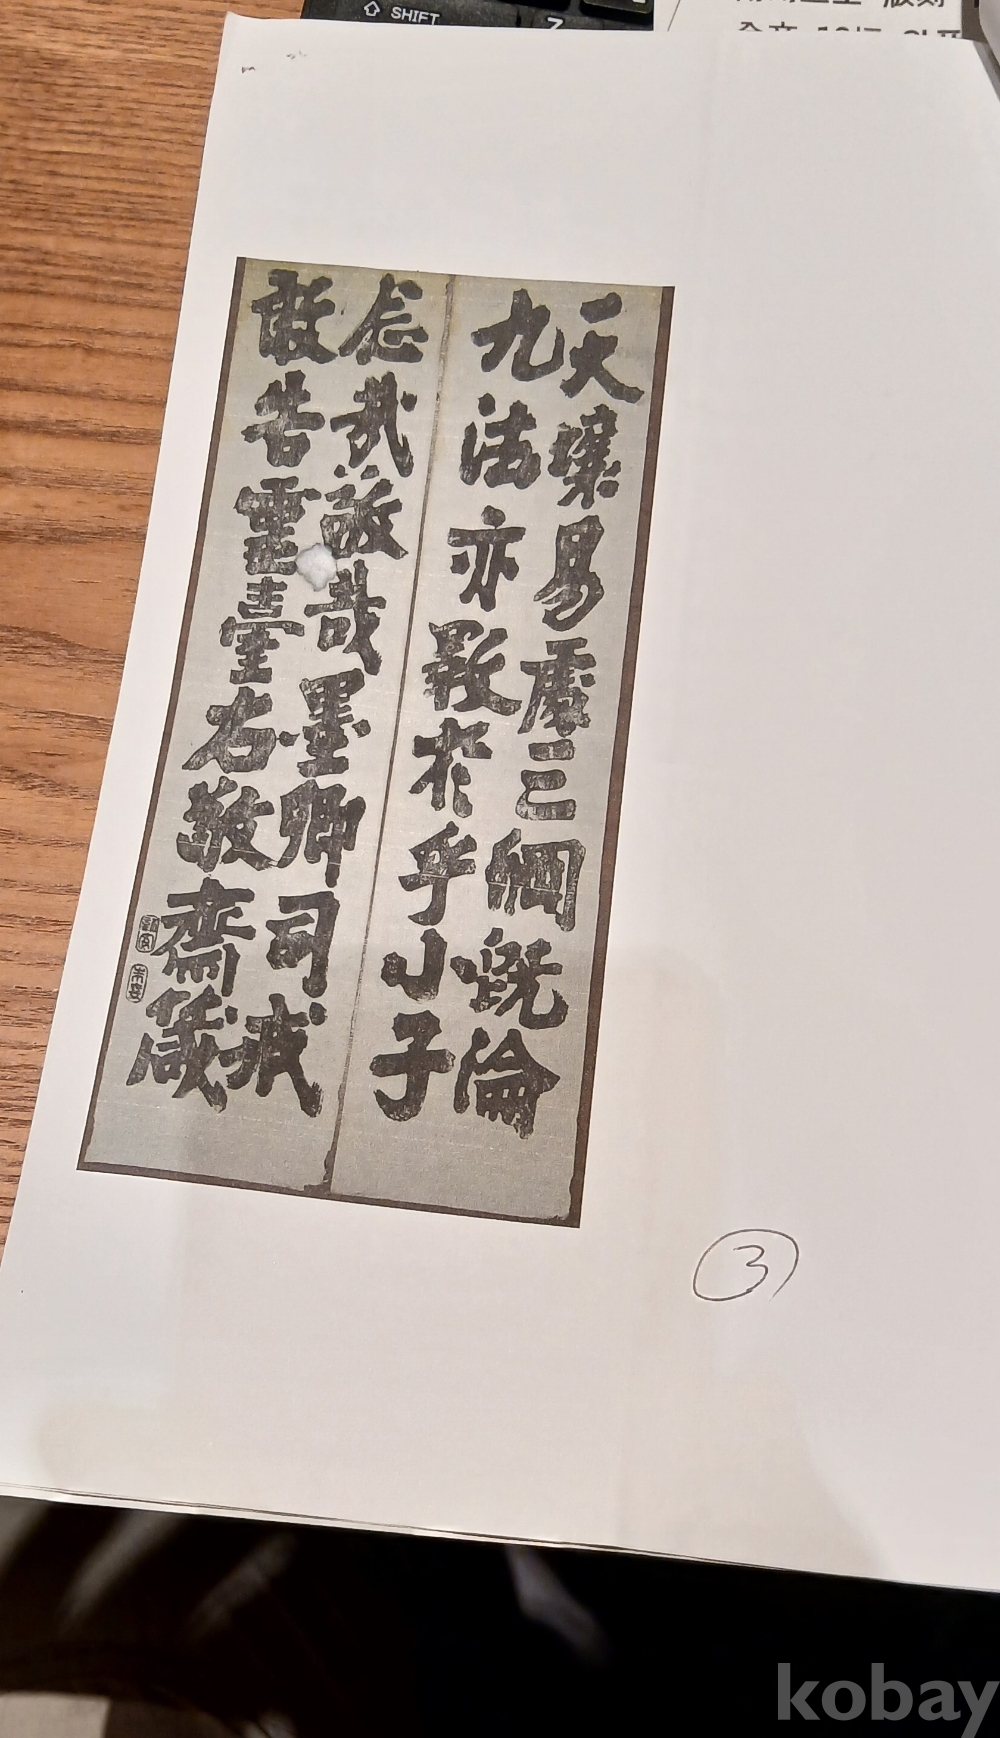 SHIFT
Z
天壤易處三綱旣淪
九法亦斁於乎小子
念哉敬哉墨卿司戒
敢告靈臺右敬齋箴
③
kobay